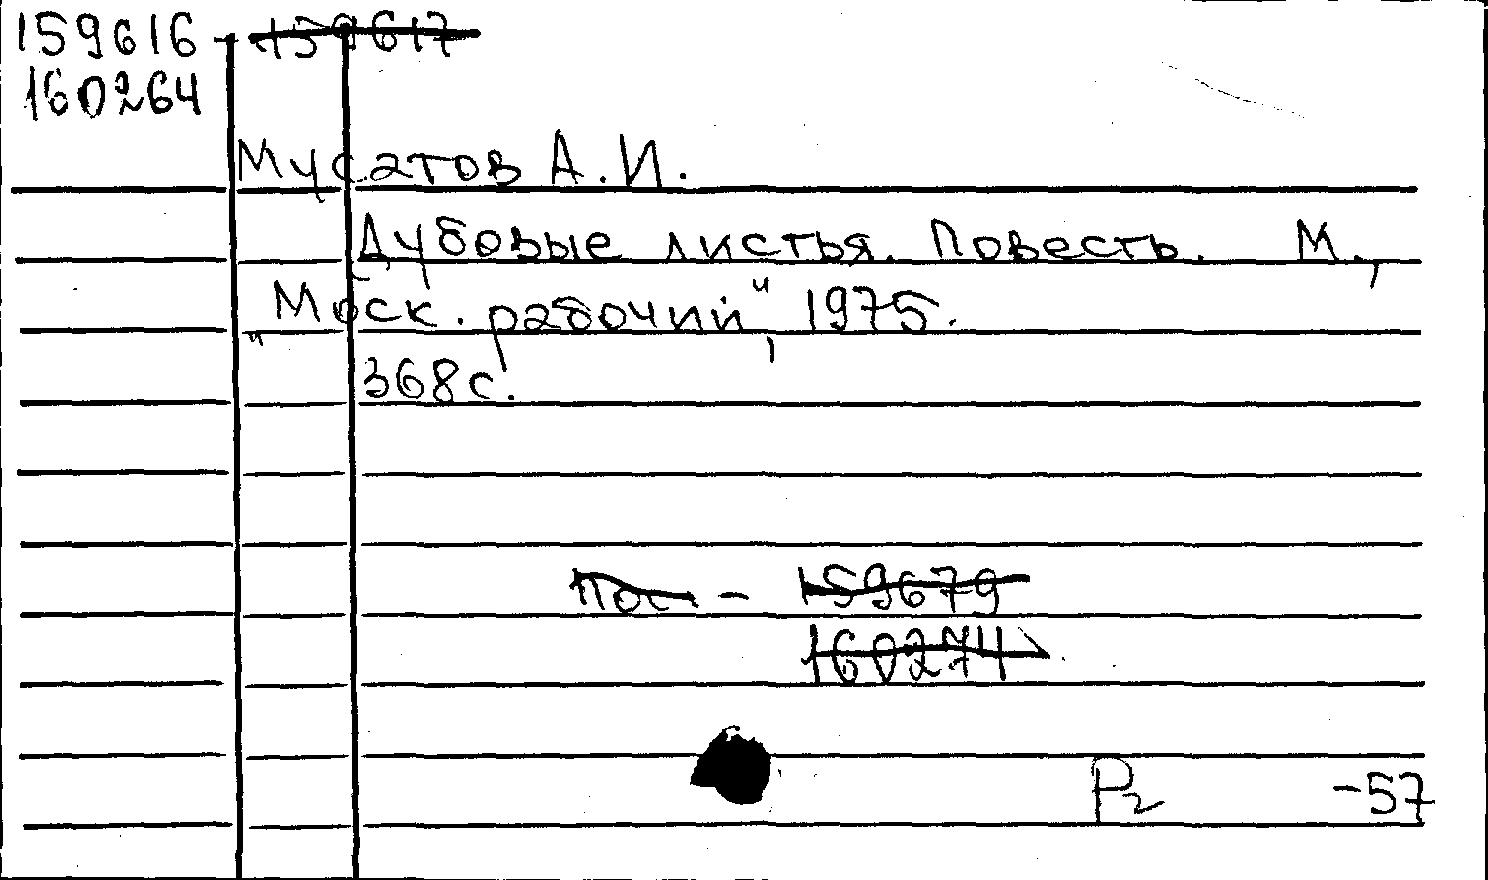 159616 - 159617
160264
Мусатов А.И.
Дубовые листья. Повесть. М.,
"Моск. рабочий", 1975.
368с.
Пос - 159679
160274
Р2 -57